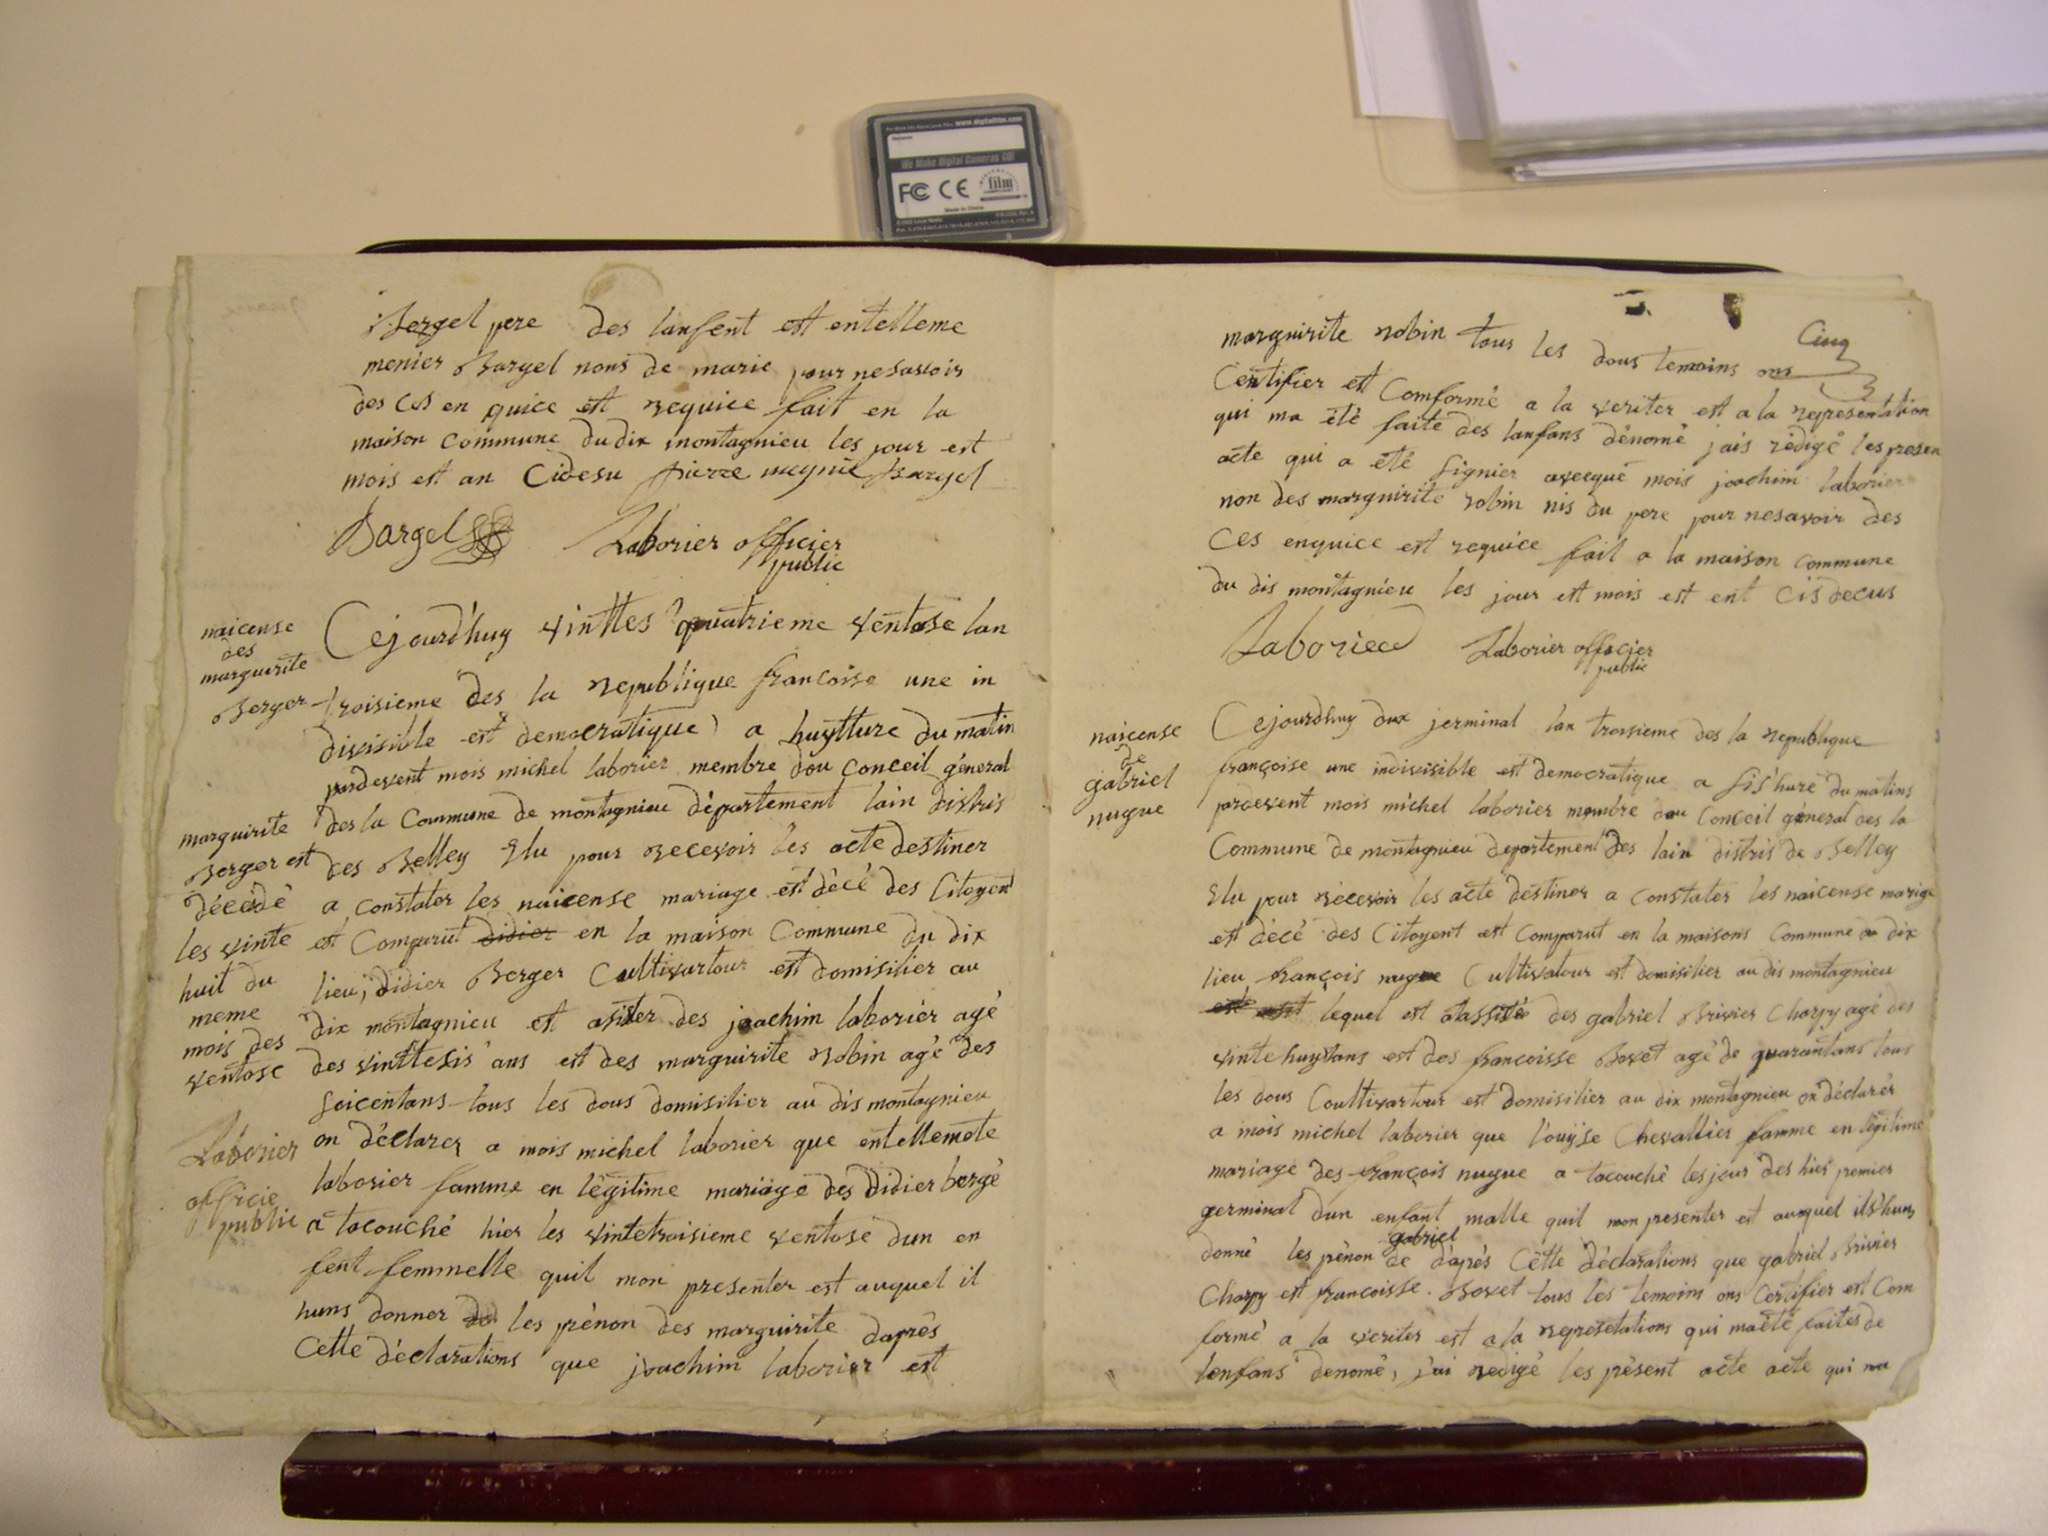 www.digitalfilm.com
We Make Digital Cameras GO!
FC CE film
Made in China
Bergel pere des lanfent est entelleme
menier Bargel nons de marie pour nesavoir
des ces en quice est requice fait en la
maison commune du dix montagnieu les jour est
mois est an Cidesu pierre meynié Bargel
Bargel Laborier officier
public
naicense
des
marguirite
Berger
Cejourdhuy vinttes quatrieme ventose lan
troisieme des la republique francoise une in
divisible est democratique a huytture du matin
pardevent mois michel laborier membre dou conceil géneral
des la Commune de montagnieu département lain distris
des Belley Elu pour recevoir les acte destiner
a constater les naicense mariage est décé des Citoyent
est Comparut didier en la maison Commune du dix
lieu, didier Berger Cultivartour est domisilier au
dix montagnieu est asister des joachim laborier agé
des vinttesis ans est des marguirite robin agé des
soicentans tous les dous domisilier au dis montagnieu
on déclarer a mois michel laborier que entellemote
laborier famme en légitime mariage des didier bergé
a tacouché hier les vintetroisieme ventose dun en
fent femmelle quil mon presenter est auquel il
huns donner de les prénon des marguirite daprés
Cette déclarations que joachim laborier est
marguirite
Berger est
décédé
les vinte
huit du
meme
mois des
ventose
Laborier
officie
public
Cinq
marguirite robin tous les dous temoins ons
Certifier est Comformé a la veriter est a la representation
qui ma été faite des lanfans dénomé jais rédigé les presen
acte qui a été signier avecque mois joachim laborier
non des marguirite robin nis du pere pour nesavoir des
Ces enquice est requice fait a la maison commune
du dis montagnieu les jour est mois est ent Cis decus
Laborier Laborier officier
public
naicense
de
gabriel
nugue
Cejourdhuy dux jerminal lan troisieme des la republique
françoise une indivisible est democratique a sis hure du matins
pardevent mois michel laborier membre dou Conceil géneral des la
Commune de montagnieu departement des lain distris de Belley
Elu pour récevoir les acte déstiner a constater les naicense mariage
est décé des Citoyent est Comparut en la maisons Commune du dix
lieu françois nugue Cultivatour est domisilier au dis montagnieu
lequel est atassité des gabriel Brivier Charpy agé des
vinte huytans est des francoisse Bovet agé de quarantans tous
les dous Coultivartour est domisilier au dix montagnieu on déclarér
a mois michel laborier que l'ouÿse Chevallier famme en légitime
mariage des françois nugue a tacouché les jour des hier premier
germinal dun enfant malle quil mon presenter est auquel ils huns
donné les prénon de gabriel daprés Cétte déclarations que gabriel Brivier
Charpy est francoisse Bovet tous les temoins ons Certifier est Com
formé a la veriter est a la represetations qui maété faites de
lenfans denomé, j'ai redigé les présent acte acte qui ma